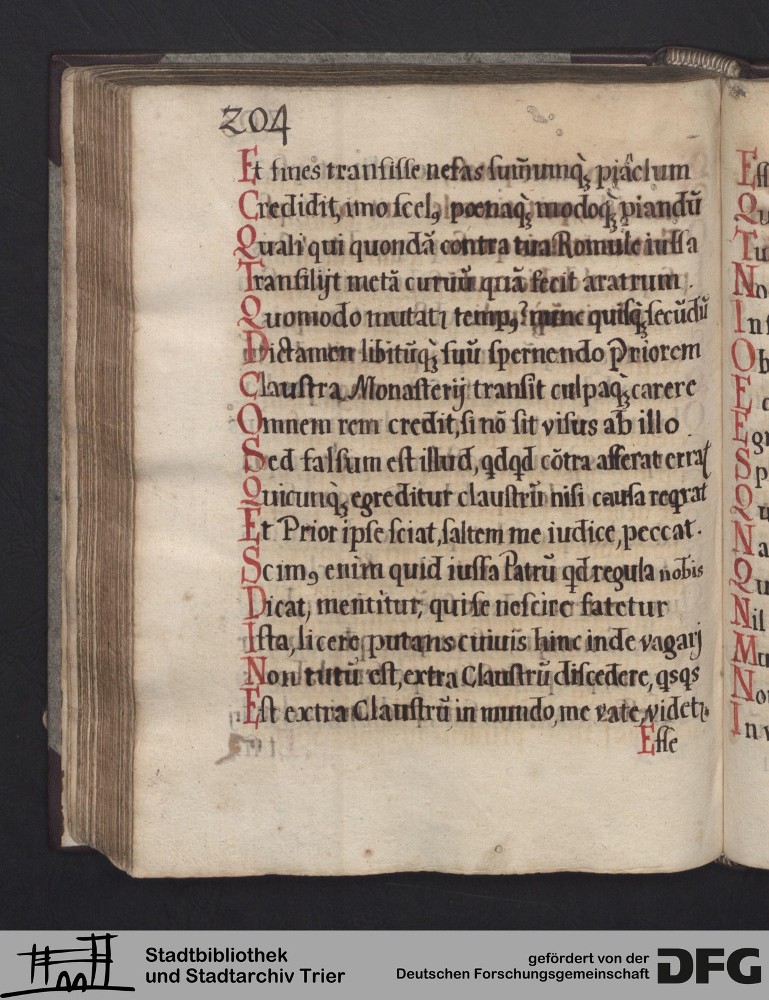 204
Et fines transisse nefas sum̃umqꝫ piâclum
Credidit, imo scelꝯ poenaqꝫ modoqꝫ piandū
Quali qui quondā contra tua Romule iussa
Transilijt metā curuū quā fecit aratrum.
Quomodo mutatꝛ tempꝯ? nunc quisqꝫ secūdū
Dictamen libitūqꝫ suū spernendo Priorem
Claustra Monasterij transit culpaqꝫ carere
Omnem rem credit, si nō sit visus ab illo.
Sed falsum est illud, qdqd cōtra afferat erra
Quicunqꝫ egreditur claustrū nisi causa reqrat
Et Prior ipse sciat, saltem me iudice, peccat.
Scimꝯ enim quid iussa Patrū qd regula nobis
Dicat, mentitur, qui se nescire fatetur
Ista, licere putans cuiuis hinc inde vagarj
Non tutū est, extra Claustrū discedere, qsqs
Est extra Claustrū in mundo, me vate, videtꝛ.
Esse
Ess
Qu
Tu
No
Inf
Ob
E
Egr
Sp
Qu
Na
Qu
Nil
Mu
No
In v
Stadtbibliothek
und Stadtarchiv Trier
gefördert von der
Deutschen Forschungsgemeinschaft
DFG